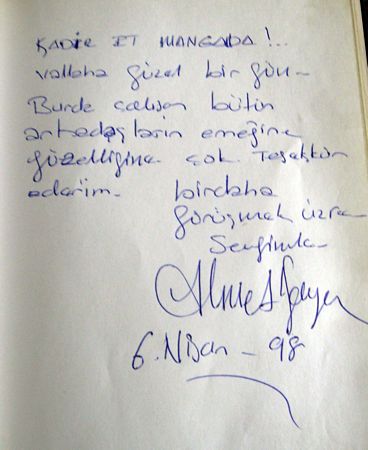 KADİR ET MANGADA !..
Vallaha güzel bir gün-
Burda çalışan bütün
arkadaşların emeğine
güzelliğine çok Teşekkür
ederim. birdaha
görüşmek üzre
Sevgimle
6. Nisan - 98